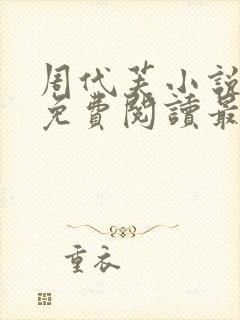 周代芙小說
免費閱讀最
重衣